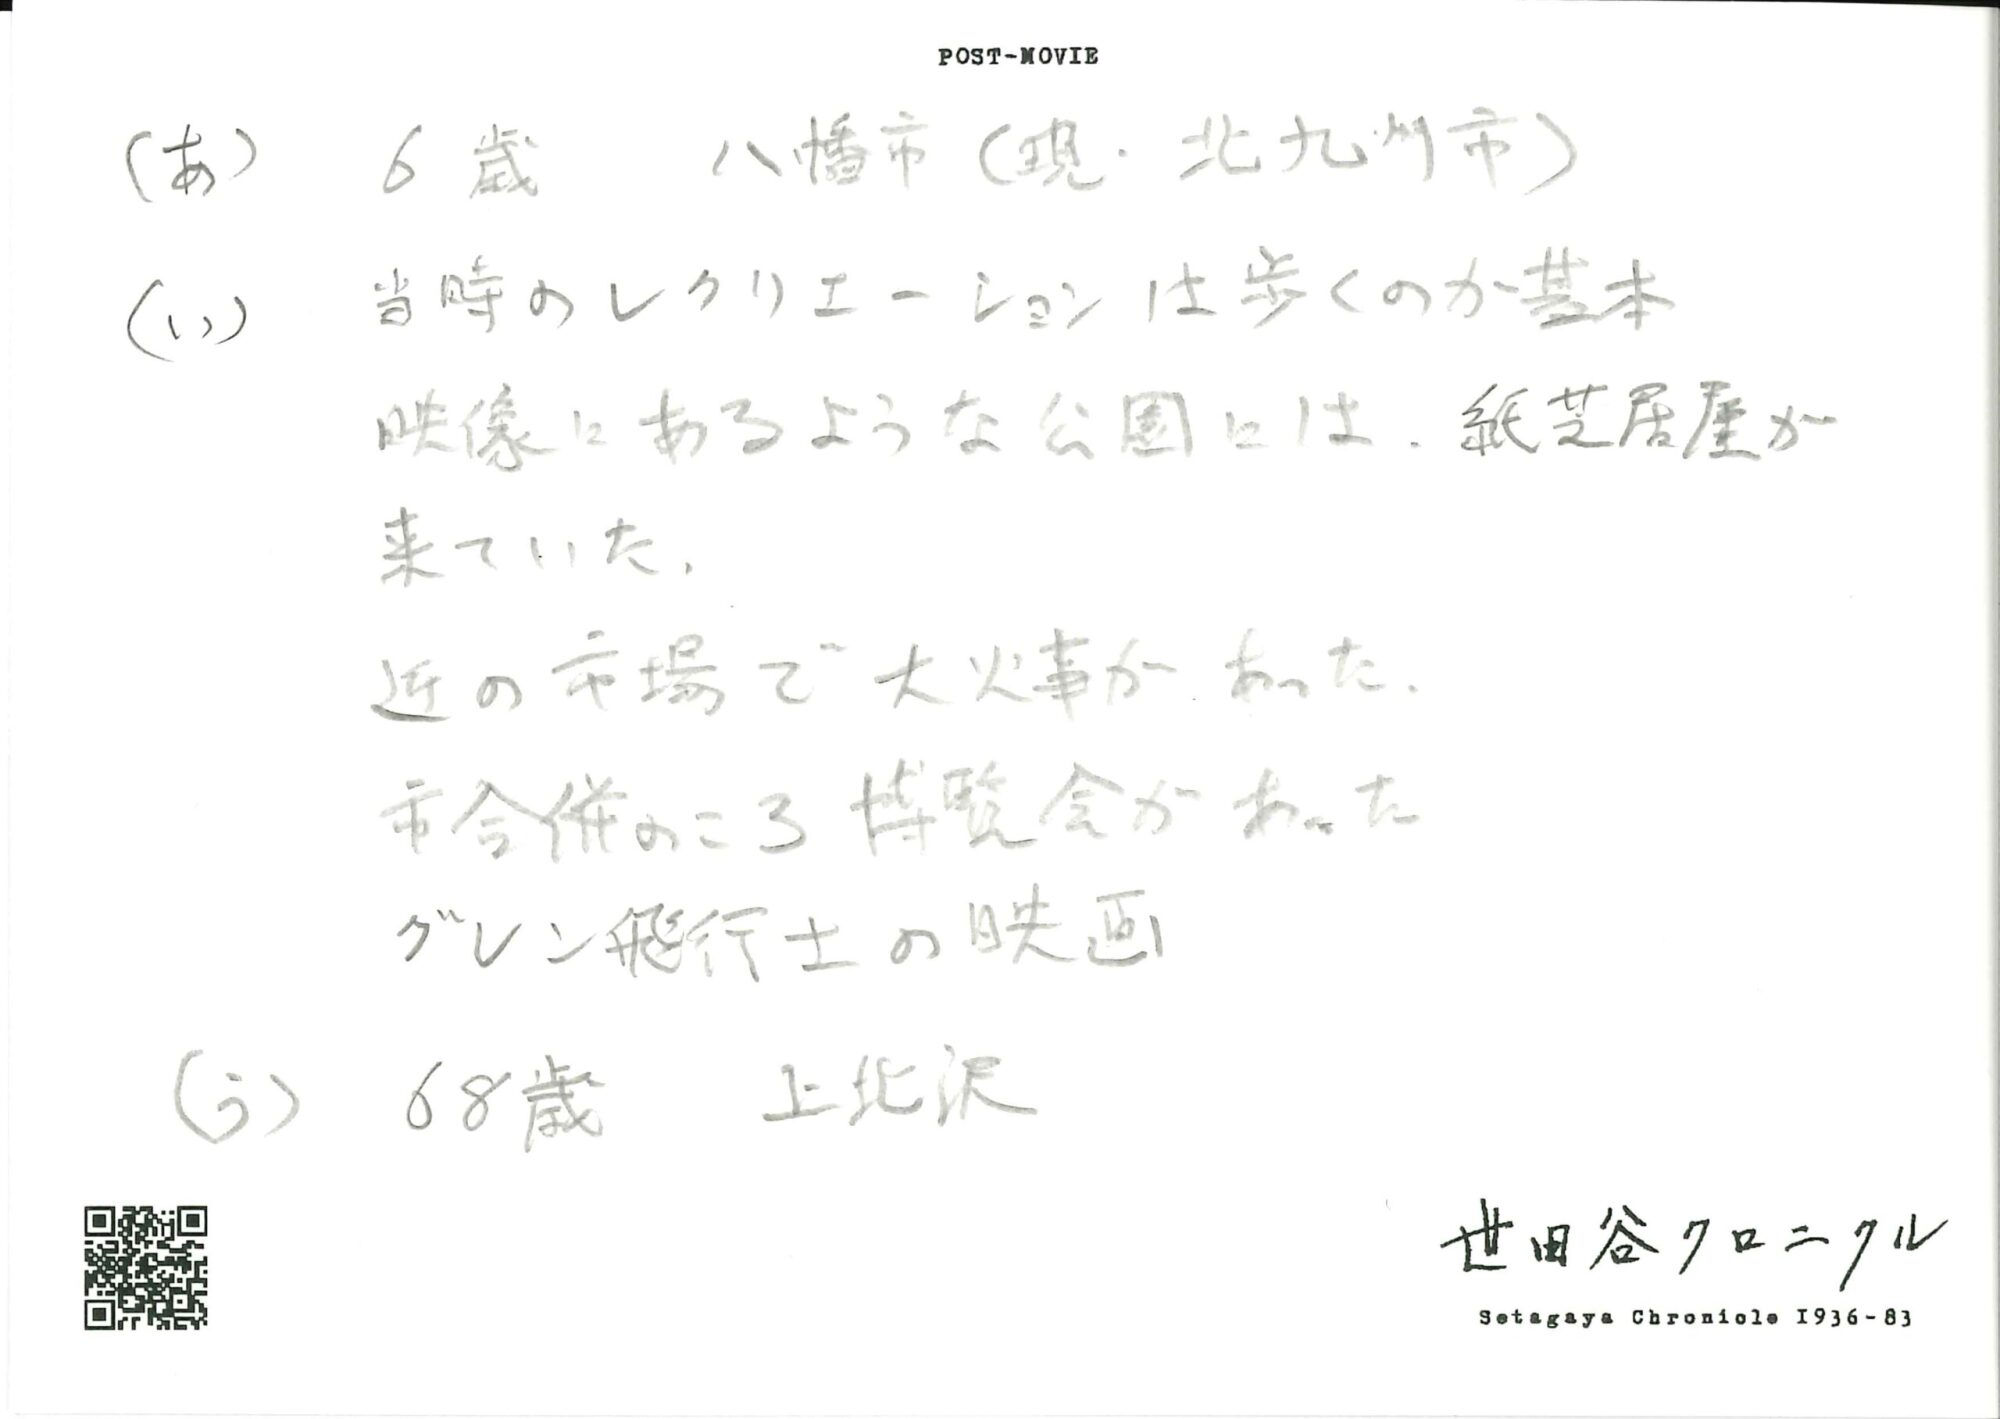 POST-MOVIE
(あ) 6歳 八幡市(現・北九州市)
(い) 当時のレクリエーションは歩くのが基本
映像にあるような公園には、紙芝居屋が
来ていた。
近の市場で大火事があった。
市合併のころ博覧会があった
グレン飛行士の映画
(う) 68歳 上北沢
世田谷クロニクル
Setagaya Chronicle 1936-83